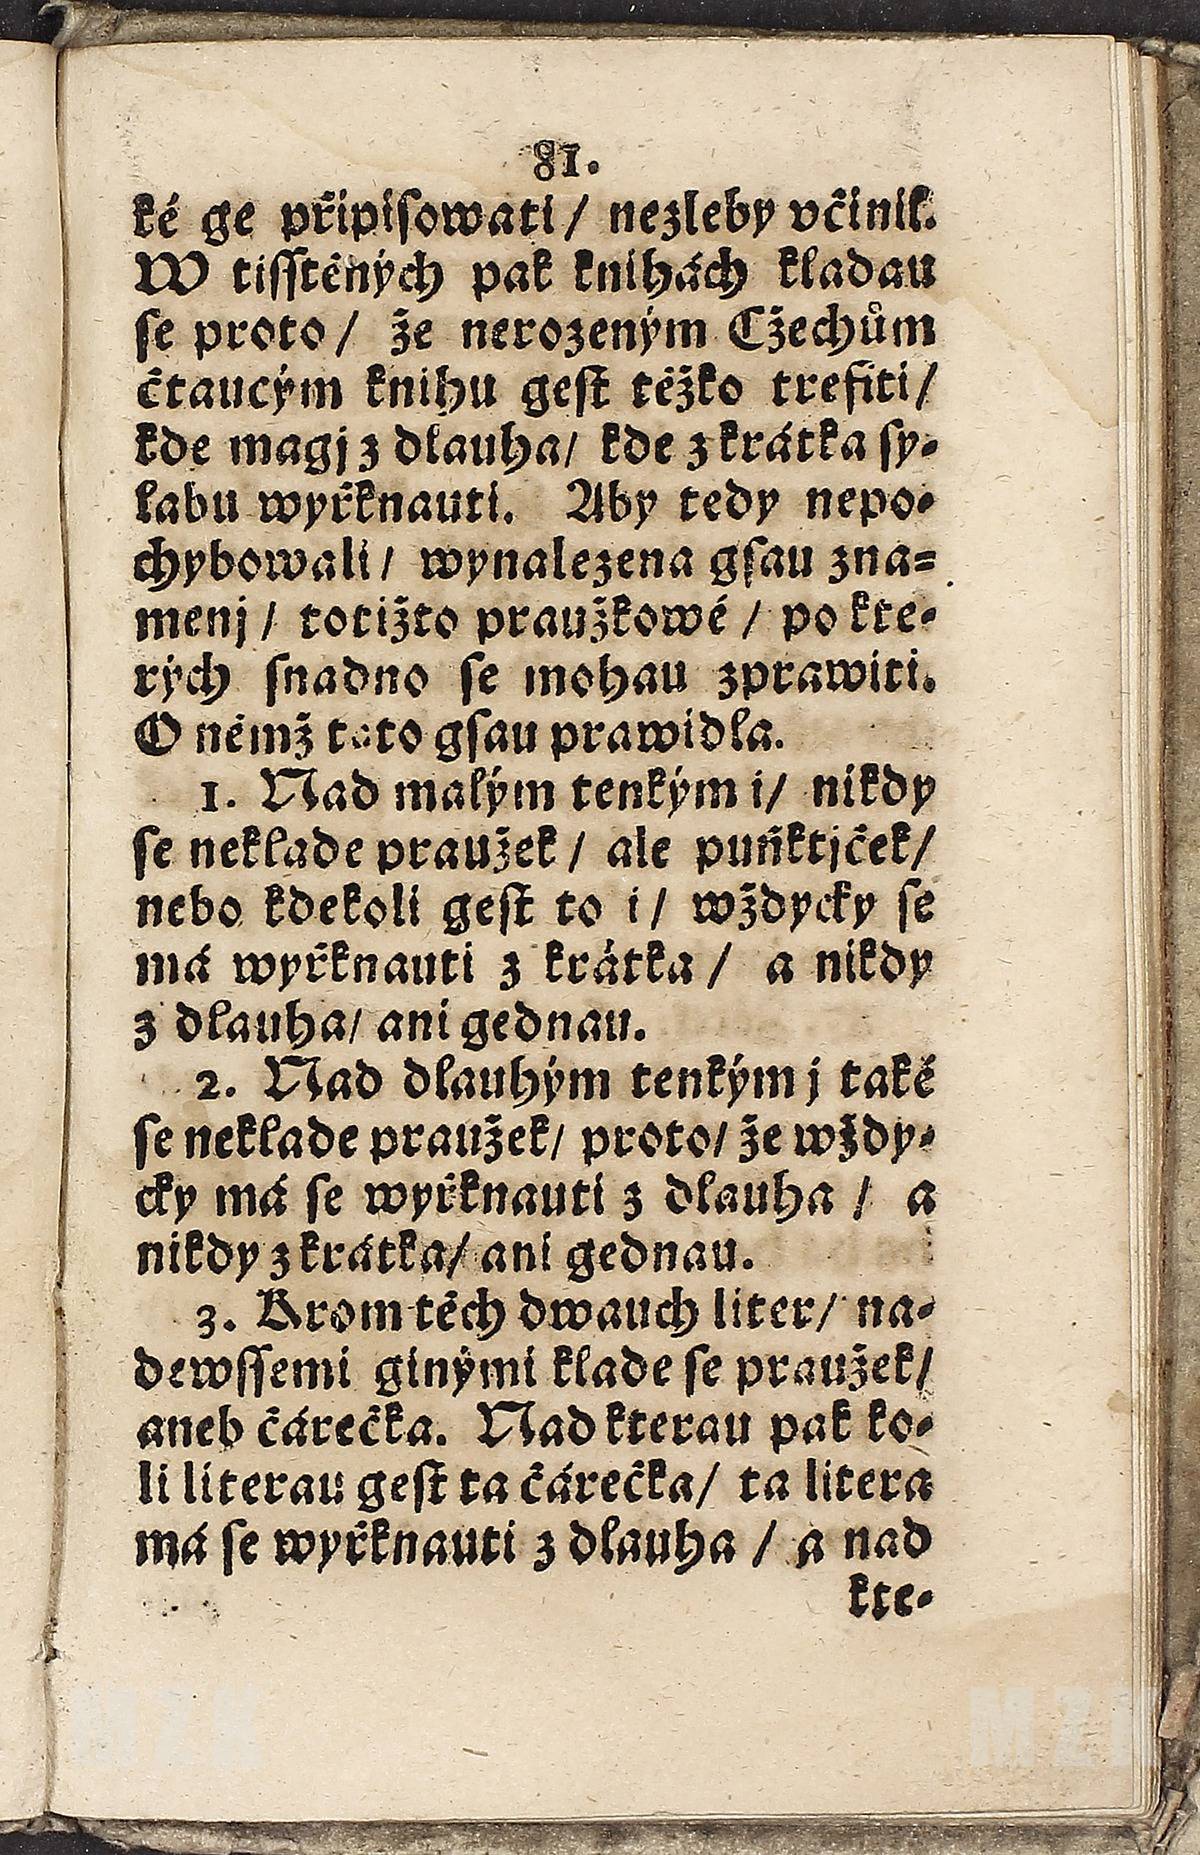 81.
ké ge připisowati / nezleby včinil.
W tiſſtěných pak knihách kladau
ſe proto / že nerozeným Cžechům
čtaucým knihu geſt těžko trefiti /
kde magj z dlauha / kde z krátka ſy-
labu wyřknauti. Aby tedy nepo-
chybowali / wynalezena gſau zna=
menj / totižto praužkowé / po kte-
rých ſnadno ſe mohau zprawiti.
O němž tato gſau prawidla.
1. Nad malým tenkým i / nikdy
ſe neklade praužek / ale puňktjček /
nebo kdekoli geſt to i / wždycky ſe
má wyřknauti z krátka / a nikdy
z dlauha / ani gednau.
2. Nad dlauhým tenkým j také
ſe neklade praužek / proto / že wždy-
cky má ſe wyřknauti z dlauha / a
nikdy z krátka / ani gednau.
3. Krom těch dwauch liter / na-
dewſſemi ginými klade ſe praužek /
aneb čárečka. Nad kterau pak ko-
li literau geſt ta čárečka / ta litera
má ſe wyřknauti z dlauha / a nad
kte-
MZK
MZK